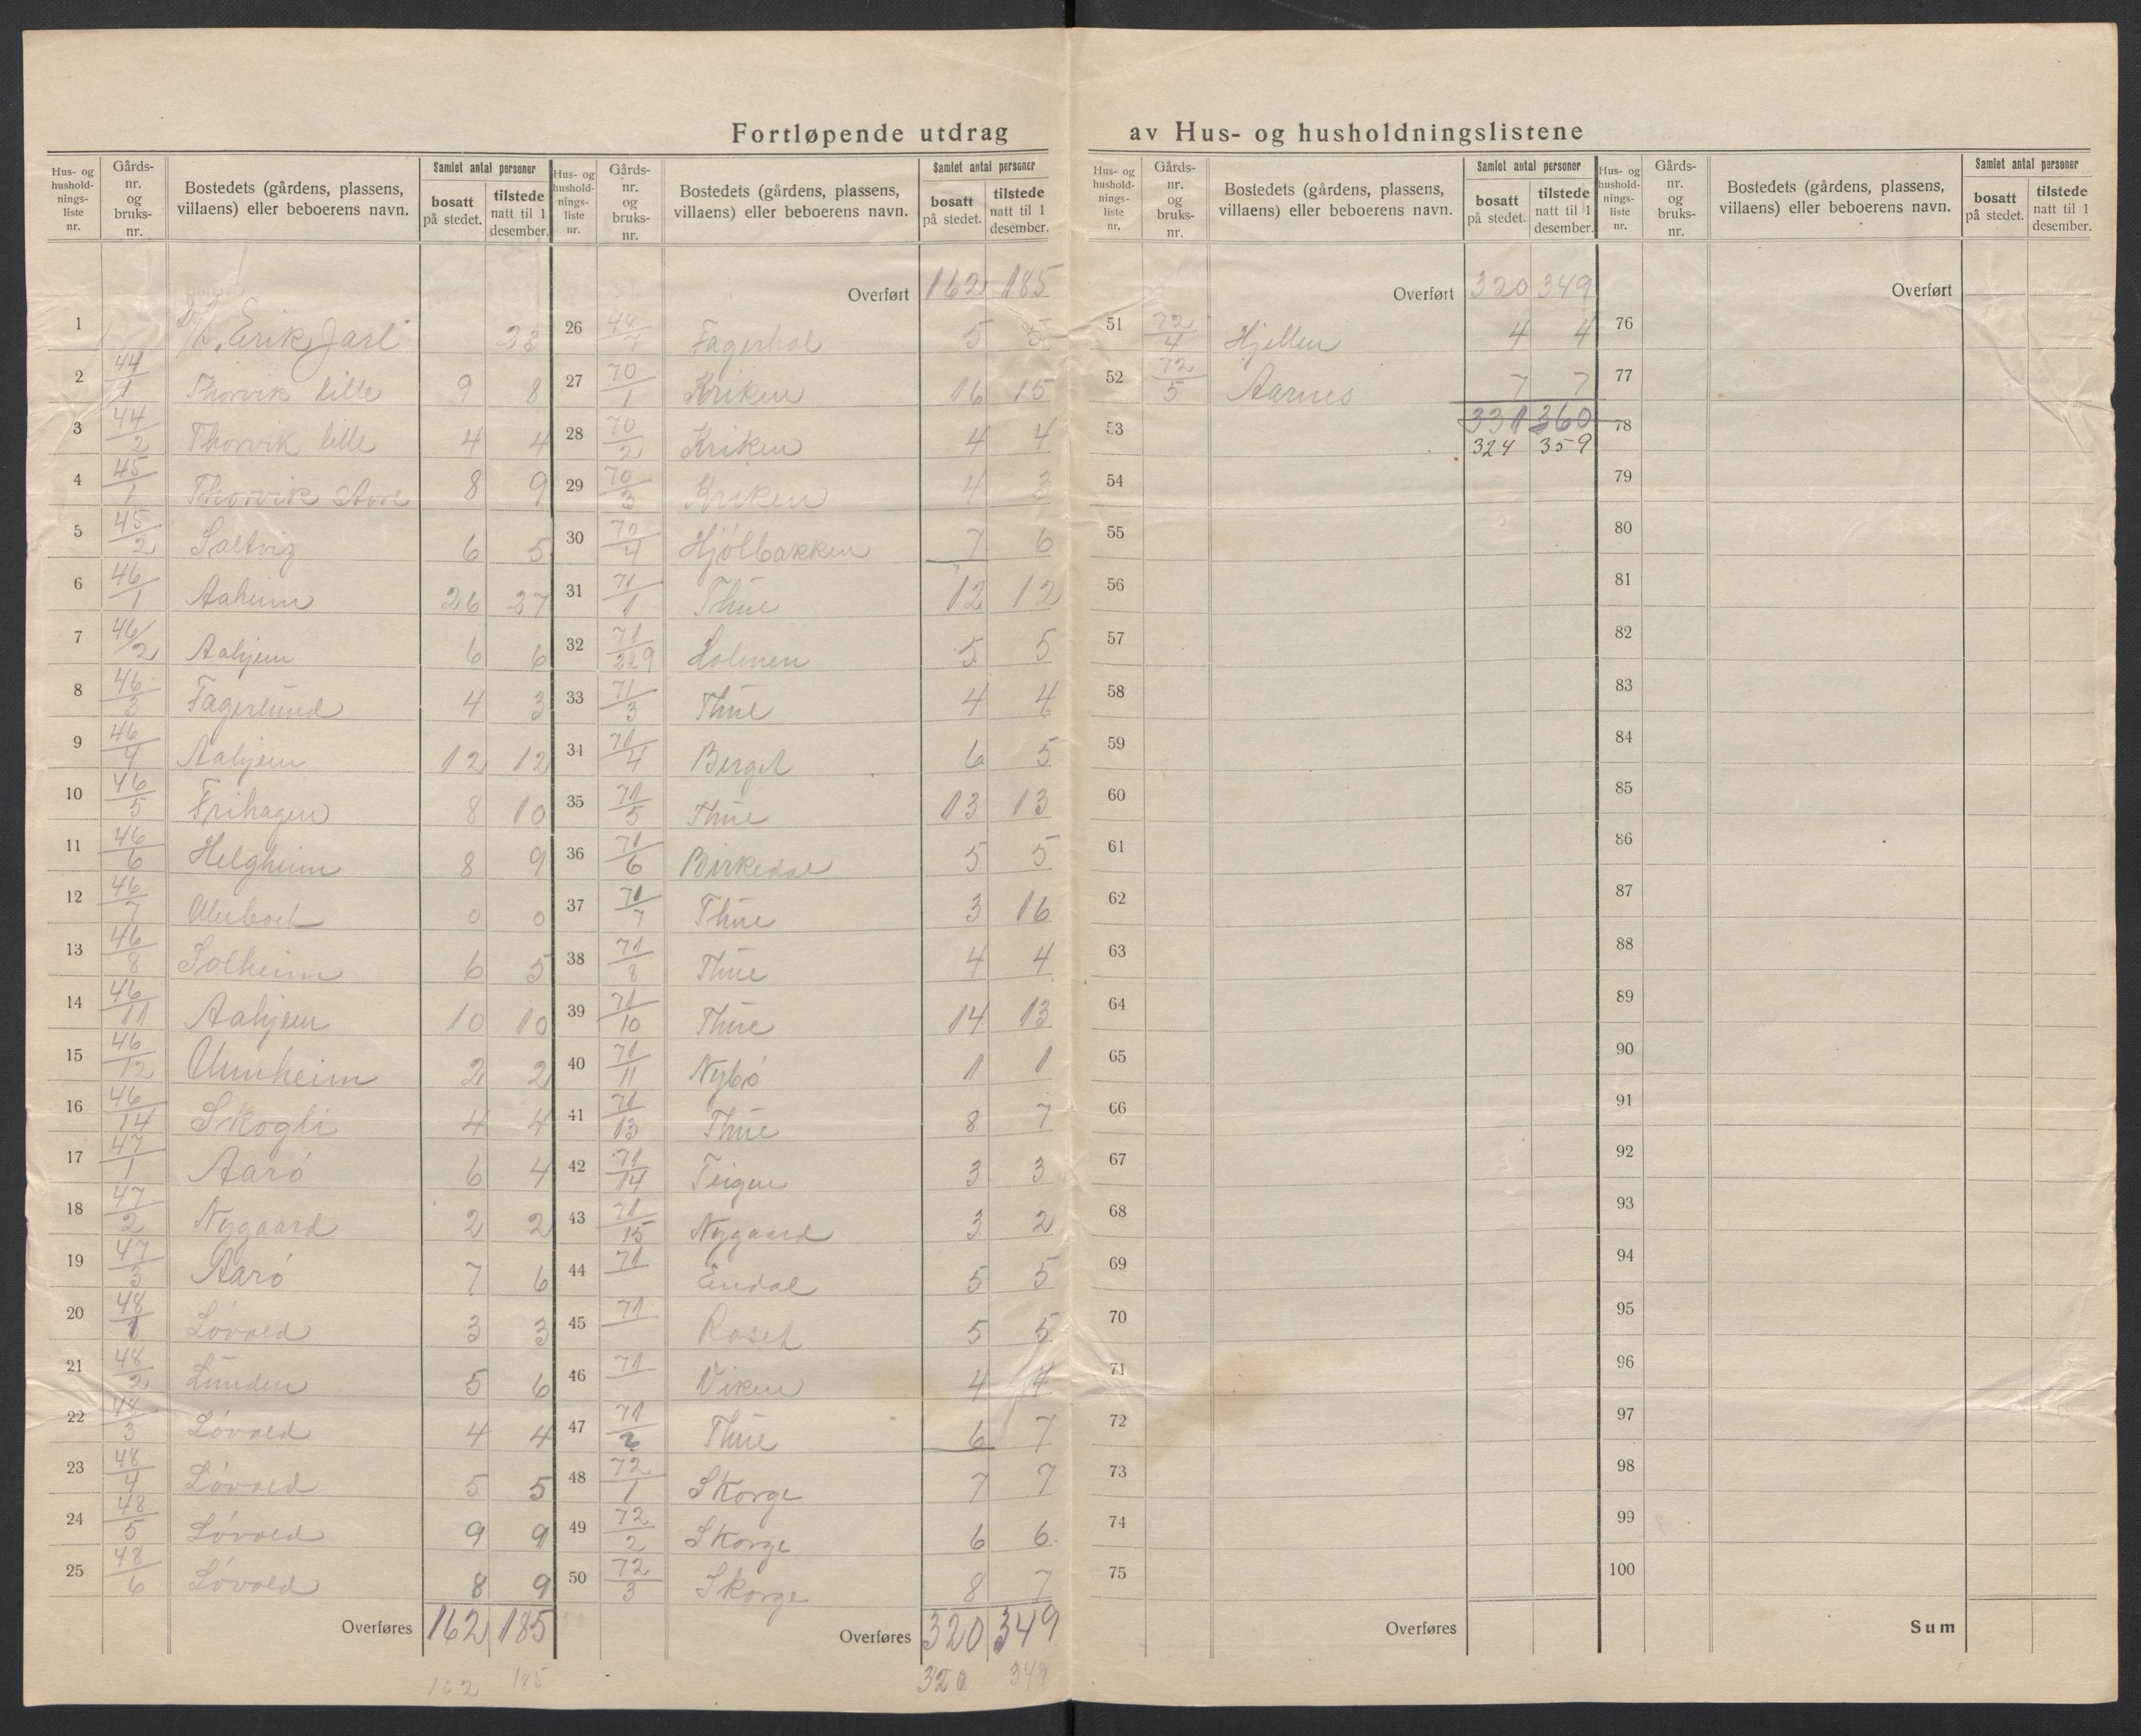 Fortløpende utdrag av Hus- og husholdningslistene
Hus- og hushold- nings- liste nr. | Gårds- nr. og bruks- nr. | Bostedets (gårdens, plassens, villaens) eller beboerens navn. | Samlet antal personer | bosatt på stedet. | tilstede natt til 1 desember.
1 D/S. Erik Jarl 23
2 44/1 Thorvik lille 9 8
3 44/2 Thorvik lille 4 4
4 45/1 Thorvik store 8 9
5 45/2 Saltvig 6 5
6 46/1 Aaheim 26 27
7 46/2 Aahjem 6 6
8 46/3 Fagerlund 4 3
9 46/4 Aahjem 12 12
10 46/5 Frihagen 8 10
11 46/6 Helgheim 8 9
12 46/7 0 0
13 46/8 Solheim 6 5
14 46/11 Aahjem 10 10
15 46/12 2 2
16 46/14 Skogli 4 4
17 47/1 Aarö 6 4
18 47/2 Nygaard 2 2
19 47/3 Aarö 7 6
20 48/1 Lövold 3 3
21 48/2 Lunden 5 6
22 48/3 Lövold 4 4
23 48/4 Lövold 5 5
24 48/5 Lövold 9 9
25 48/6 Lövold 8 9
Overføres 162 185
162 185
Hus- og hushold- nings- liste nr. | Gårds- nr. og bruks- nr. | Bostedets (gårdens, plassens, villaens) eller beboerens navn. | Samlet antal personer | bosatt på stedet. | tilstede natt til 1 desember.
Overført 162 185
26 48/7 Fagerhol 5 5
27 70/1 Kriken 16 15
28 70/2 Kriken 4 4
29 70/3 Kriken 4 3
30 70/4 Hjölbakken 7 6
31 71/1 Thue 12 12
32 71/ Holmen 5 5
33 71/3 Thue 4 4
34 71/4 Berget 6 5
35 71/5 Thue 13 13
36 71/6 Birkedal 5 5
37 71/7 Thue 3 16
38 71/8 Thue 4 4
39 71/10 Thue 14 13
40 71/11 Nybö 1 1
41 71/13 Thue 8 7
42 71/14 Teigen 3 3
43 71/15 Nygaard 3 2
44 71 Endal 5 5
45 71 Roset 5 5
46 71 Viken 4 4
47 71/2 Thue 6 7
48 72/1 Skorge 7 7
49 72/2 Skorge 6 6
50 72/3 Skorge 8 7
Overføres 320 349
320 349
Hus- og hushold- nings- liste nr. | Gårds- nr. og bruks- nr. | Bostedets (gårdens, plassens, villaens) eller beboerens navn. | Samlet antal personer | bosatt på stedet. | tilstede natt til 1 desember.
Overført 320 349
51 72/4 Hjellen 4 4
52 72/5 Aarnes 7 7
331 360
53 324 359
54
55
56
57
58
59
60
61
62
63
64
65
66
67
68
69
70
71
72
73
74
75
Overføres
Hus- og hushold- nings- liste nr. | Gårds- nr. og bruks- nr. | Bostedets (gårdens, plassens, villaens) eller beboerens navn. | Samlet antal personer | bosatt på stedet. | tilstede natt til 1 desember.
Overført
76
77
78
79
80
81
82
83
84
85
86
87
88
89
90
91
92
93
94
95
96
97
98
99
100
Sum